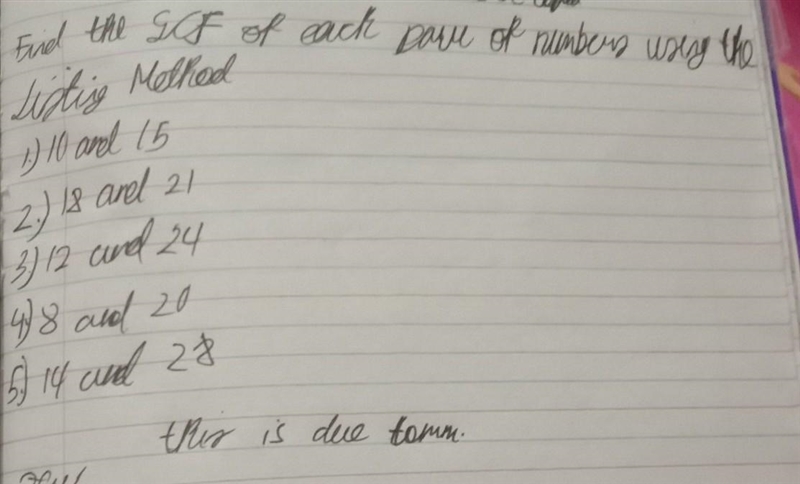 Find the GCF of each pair of numbers using the
Listing Method
1.) 10 and 15
2.) 18 and 21
3.) 12 and 24
4.) 8 and 20
5.) 14 and 28
this is due tomm.